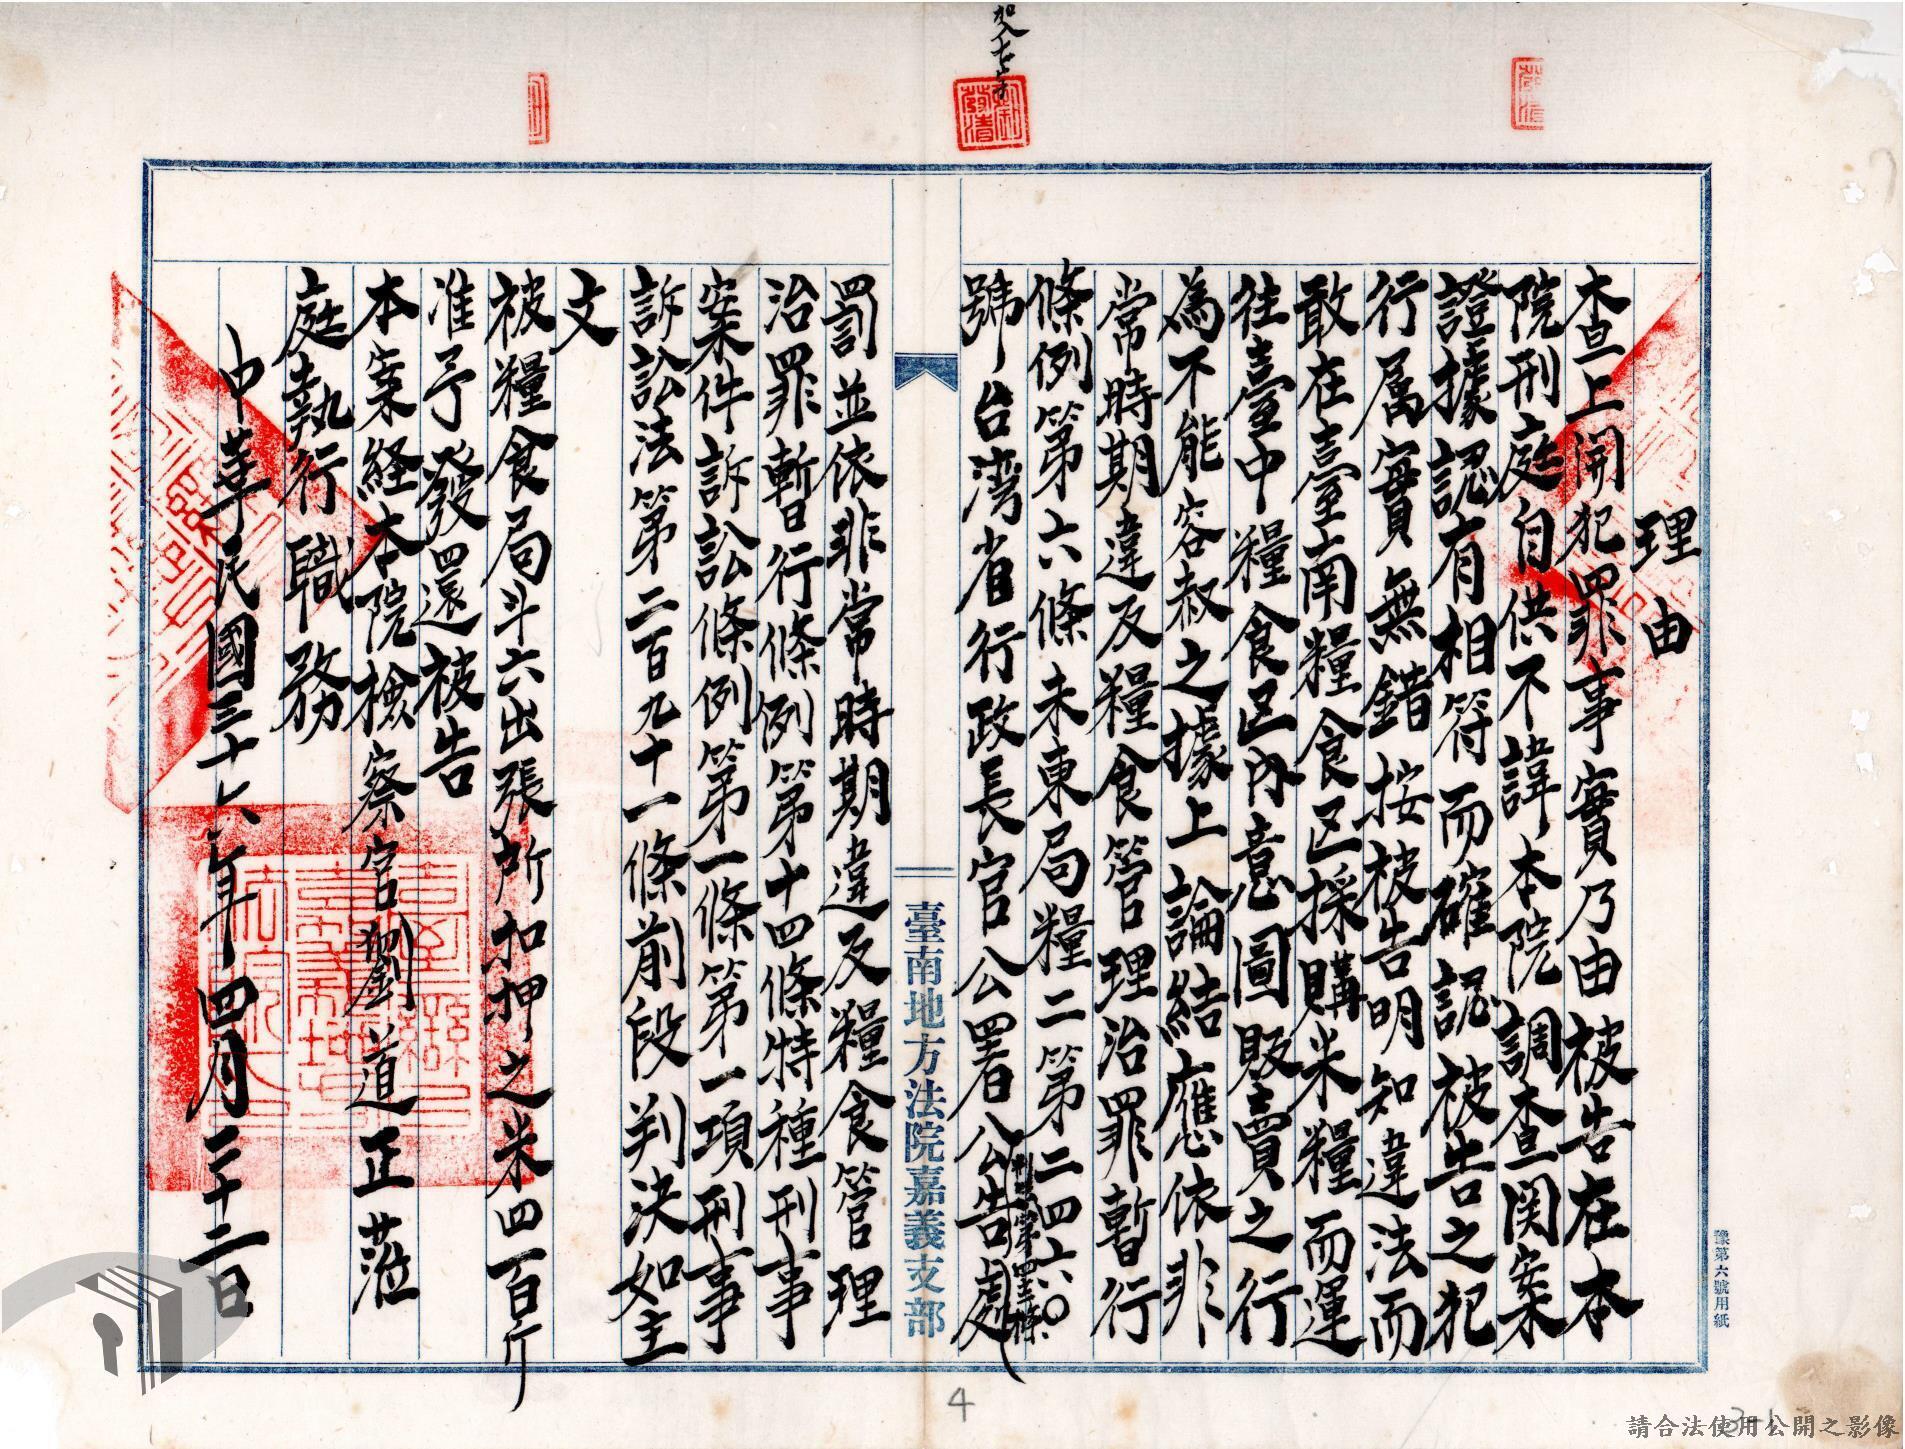 理由
查上開犯罪事實乃由被告在本
院刑庭自供不諱本院調查関案
證據認有相符而確認被告之犯
行属實無錯按被告明知違法而
敢在臺南糧食区採購米糧而運
往臺中糧食区內意圖販賣之行
為不能容赦之據上論結應依非
常時期違反糧食管理治罪暫行
條例第六條未東局糧二第二四六〇
號台湾省行政長官公署公告處
罰並依非常時期違反糧食管理
治罪暫行條例第十四條特種刑事
案件訴訟條例第一條第一項刑事
訴訟法第二百九十一條前段判決如主
文
被糧食局斗六出張所扣押之米四百斤
准予發還被告
本案経本院檢察官劉道正蒞
庭執行職務
中華民國三十六年四月二十二日
臺南地方法院嘉義支部
豫第六號用紙
4
3-1
請合法使用公開之影像